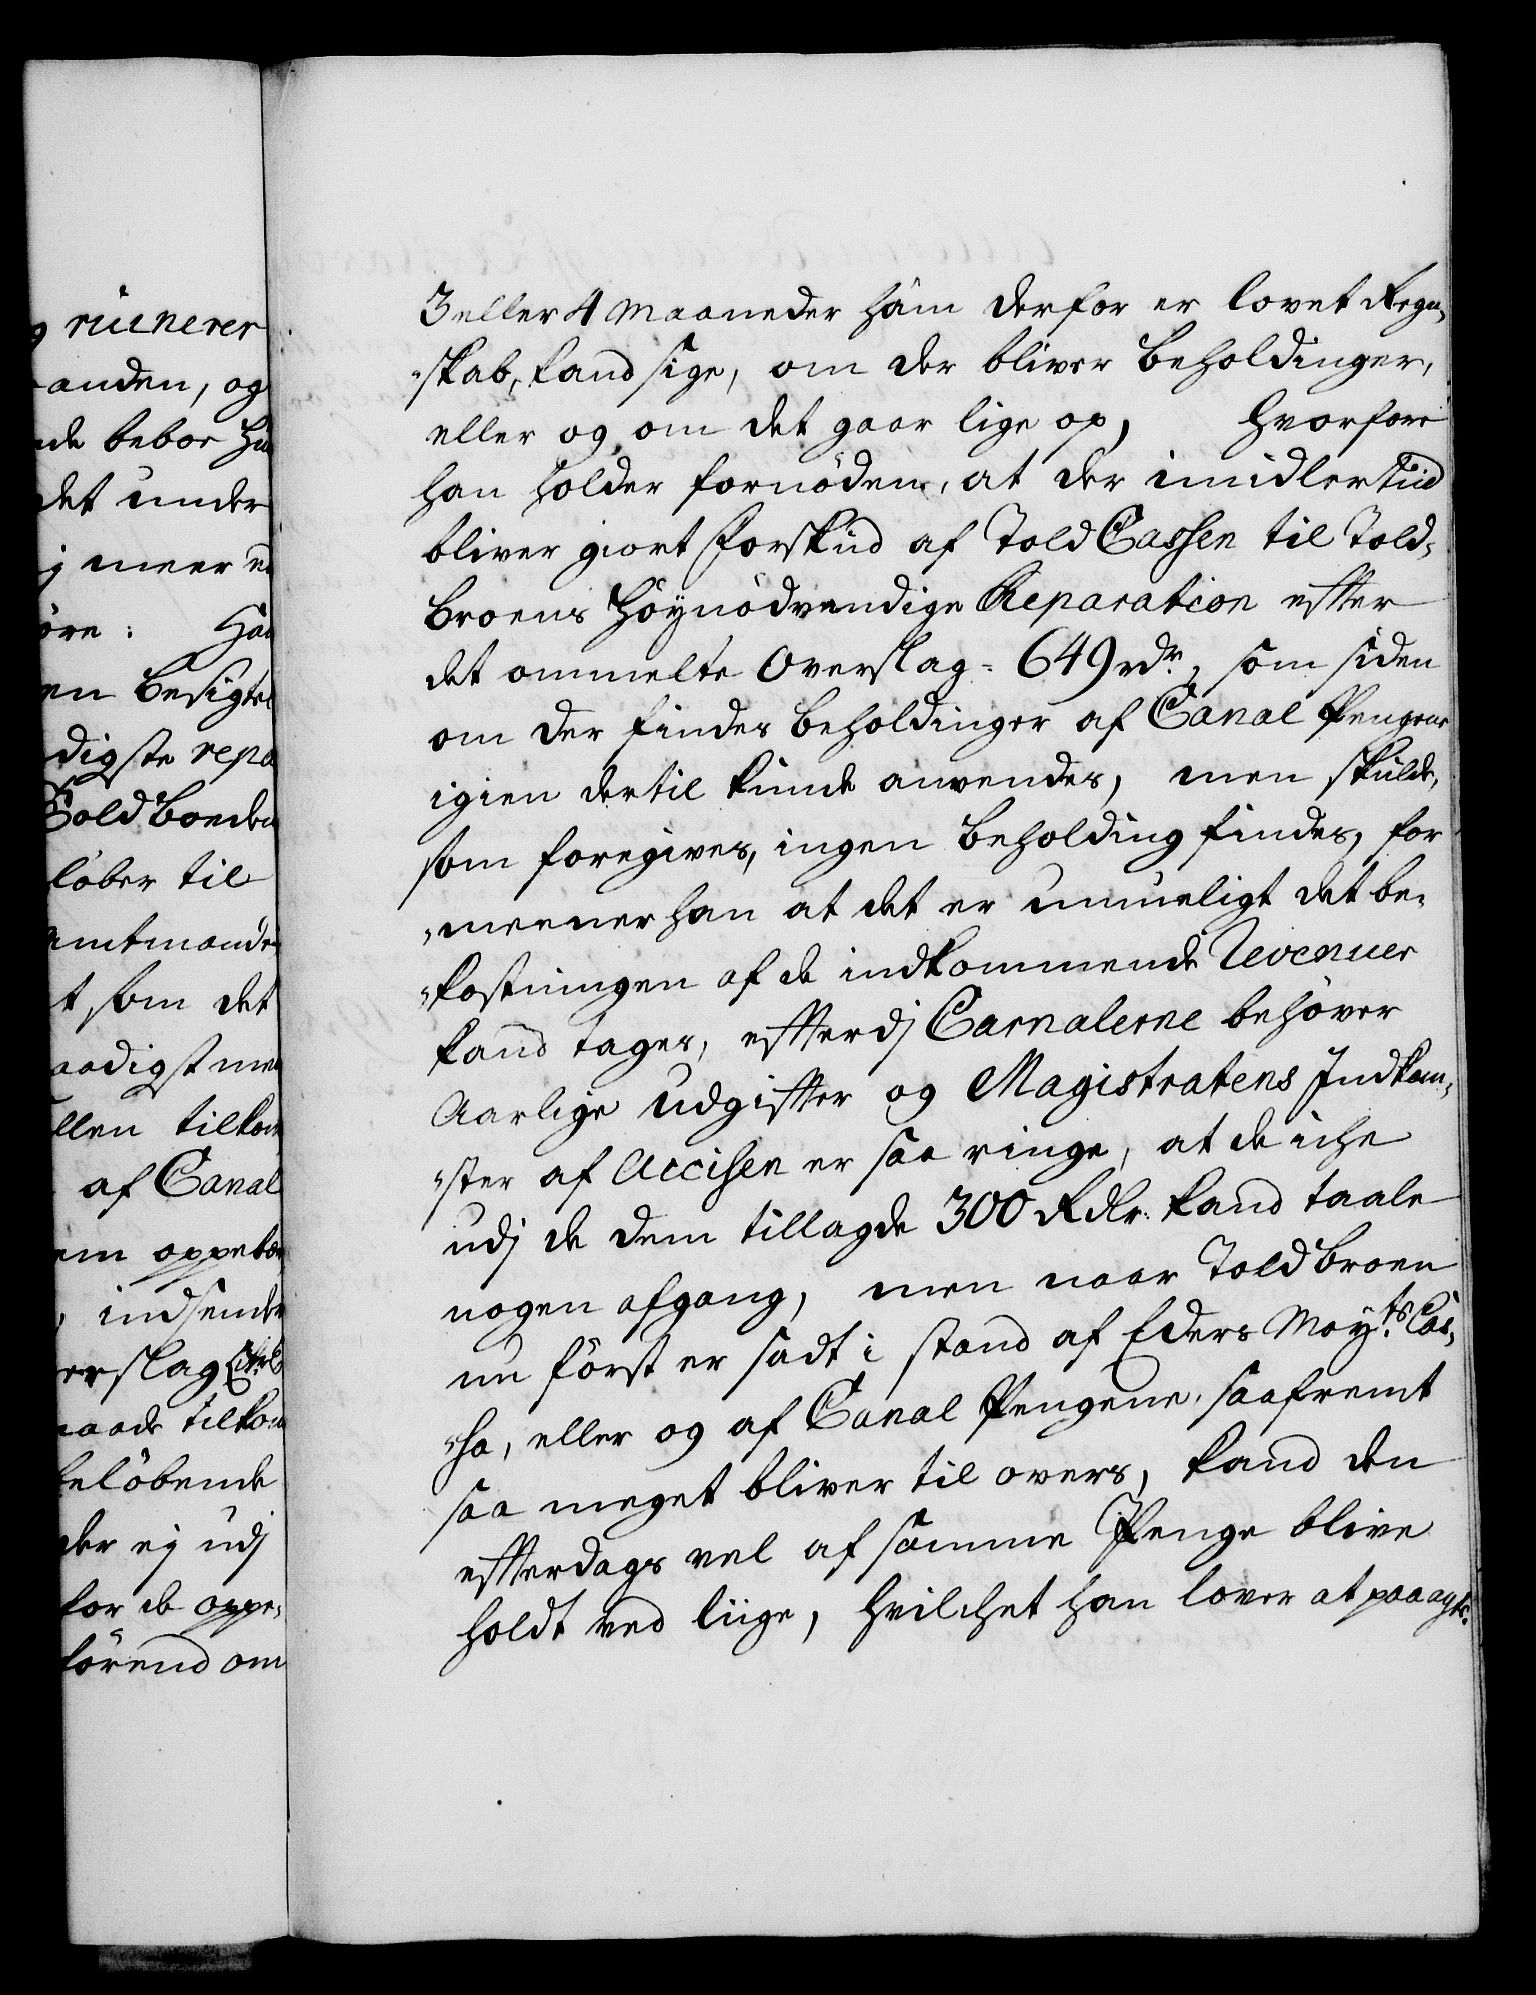 g ruinerer
anden, og
nde beboe
det under
j meer
öre:
en besigte
digste repa
Toldboeden
löber til
Amtmande
t som det
aadigst
llen tilkom
af Canal
em oppebær
indsender
erslag
maade tilkom
belöbende
der ej udj
for de oppe-
förend om
3 eller 4 Maaneder ham derfor er lovet Regn-
skab, kand sige, om der bliver Beholdinger,
eller og om det gaar lige op, hvorfore
han holder fornöden, at der imidlertiid
bliver giort Forskud af Told Cassen til Told-
broens höynödvendige Reparation effter
det ommelte Overslag = 649 rdr, som siden
om der findes beholdinger af Canal Pengene
igien dertil kunde anvendes, men skulde,
som foregives, ingen beholding findes, for
meener han at det er umueligt det be-
kostningen af de indkommende Revenuer
kand tages, effterdj Carnalerne behöver
Aarlige udgiffter og Magistratens Indkom-
ster af Accisen er saa ringe, at de iche
udj de dem tillagde 300 Rdlr. kand taale
nogen afgang, men naar Toldbroen
nu först er sadt i stand af Eders May.ts Cas-
sa, eller og af Canal Pengene, saafremt
saa meget bliver til overs, kand den
effterdags vel af samme Penge blive
holdt ved liige, hvilchet han lover at paaagte.